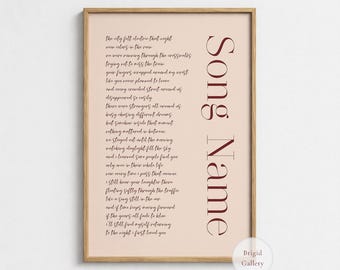 the city felt electric that night
neon colors in the rain
we were running through the crosswalks
trying not to miss the train
your fingers wrapped around my wrist
like you never planned to leave
and every crowded street around us
disappeared so easily
there were strangers all around us
busy chasing different dreams
but somehow inside that moment
nothing mattered in between
we stayed out until the morning
watching daylight fill the sky
and i learned some people find you
only once in their whole life
now every time i pass that avenue
i still hear your laughter there
floating softly through the traffic
like a song still in the air
and if time keeps moving forward
if the years all fade to blue
i'll still find myself returning
to the night i first loved you
Song Name
Brigid
Gallery